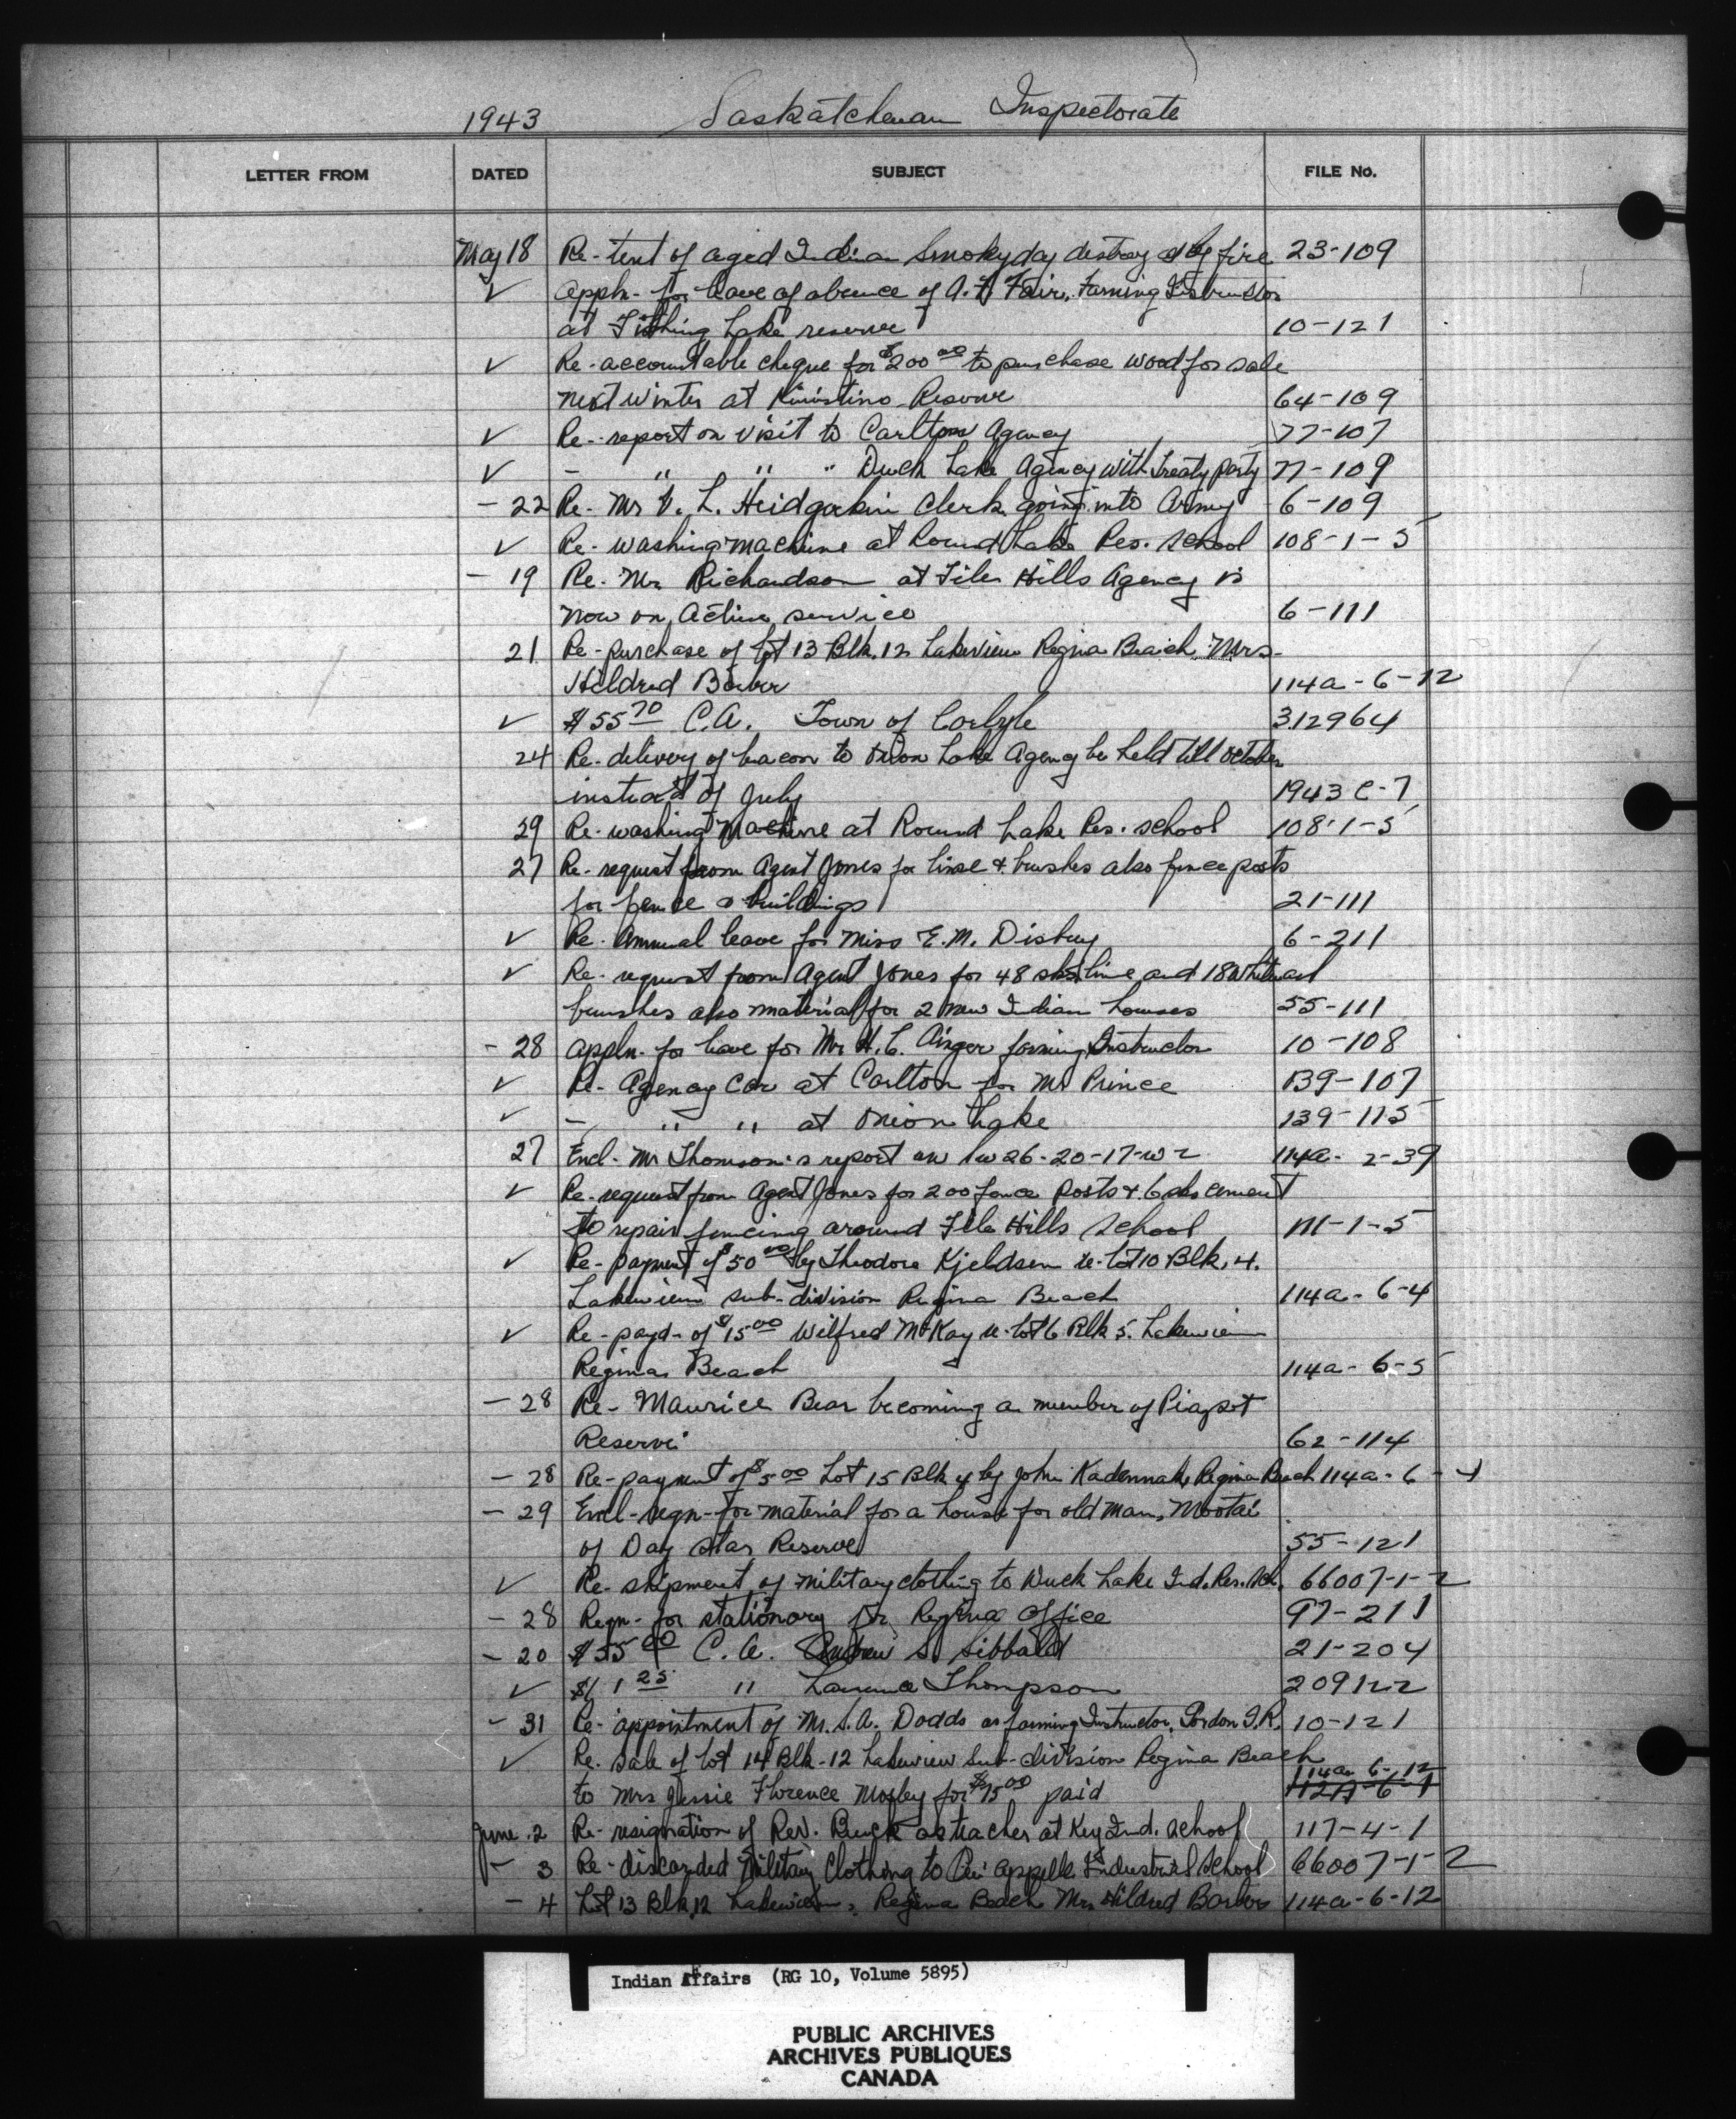 1943 Saskatchewan Inspectorate
LETTER FROM DATED SUBJECT FILE No.
May 18 Re- tent of aged Indian Smokyday destroyed by fire 23-109
✓ Appln- for leave of absence of A. F. Fair, Farming Instructor
at Fishing Lake reserve 10-121
✓ Re- accountable cheque for $200 00 to purchase wood for sale
next winter at Kinistino Reserve 64-109
✓ Re- report on visit to Carlton Agency 77-107
✓ - " " " Duck Lake Agency with Treaty party 77-109
- 22 Re- Mr V. L. clerk going into Army 6-109
✓ Re- washing machine at Round Lake Res. School 108-1-5
- 19 Re- Mr Richardson at File Hills Agency is
now on Active service 6-111
21 Re- purchase of lot 13 Blk. 12 Lakeview Regina Beach Mrs-
Hildred Barber 114a-6-12
✓ $55 70 C.A. Town of Carlyle 312964
24 Re- delivery of bacon to Onion Lake Agency be held till October
instead of July 1943 C-7
29 Re- washing machine at Round Lake Res. School 108-1-5
27 Re- request from Agent Jones for lime & brushes also fence posts
for fence & buildings 21-111
✓ Re- Annual leave for Miss E. M. Disbry 6-211
✓ Re- request from Agent Jones for 48 sks lime and 18 Whitewash
brushes also material for 2 new Indian houses 55-111
- 28 Appln- for leave for Mr H. C. Ainger farming Instructor 10-108
✓ Re- Agency Car at Carlton for Mr Prince 139-107
✓ - " " at Onion Lake 139-115
27 Encl- Mr Thomson's report on 26-20-17-W2 114a-2-39
✓ Re- request from Agent Jones for 200 fence posts & 6 sks cement
to repair fencing around File Hills School 111-1-5
✓ Re- payment of $50 00 by Theodore Kjeldsen re- lot 10 Blk. 4.
Lakeview sub-division Regina Beach 114a-6-4
✓ Re- payd- of $15 00 Wilfred McKay re- lot 6 Blk 5. Lakeview
Regina Beach 114a-6-5
- 28 Re- Maurice Bear becoming a member of Piapot
Reserve 62-114
- 28 Re- payment of $5 00 Lot 15 Blk 4 by John Regina Beach 114a-6-4
- 29 Encl- reqn- for material for a house for old man, Mootai
of Day Star Reserve 55-121
✓ Re- shipment of military clothing to Duck Lake Ind. Res. Sch. 66007-1-2
- 28 Reqn- for stationary for Regina Office 97-211
- 20 C. A. Andrew S. Sibbald 21-204
✓ $1 25 " Thompson 209122
- 31 Re- appointment of Mr. S. A. Dodds as farming Instructor, Gordon I.R. 10-121
✓ Re. Sale of lot 14 Blk-12 Lakeview Sub-division Regina Beach
114a 6-12
to Mrs Jessie Florence Mosley for $75 00 paid 112A-6-1
June 2 Re- resignation of Rev. Buck as teacher at Key Ind. School 117-4-1
- 3 Re- discarded Military Clothing to Qu'Appelle Industrial School 66007-1-2
- 4 Lot 13 Blk 12 Lakeview, Regina Beach Mrs Hildred Barber 114a-6-12
Indian Affairs (RG 10, Volume 5895)
PUBLIC ARCHIVES
ARCHIVES PUBLIQUES
CANADA